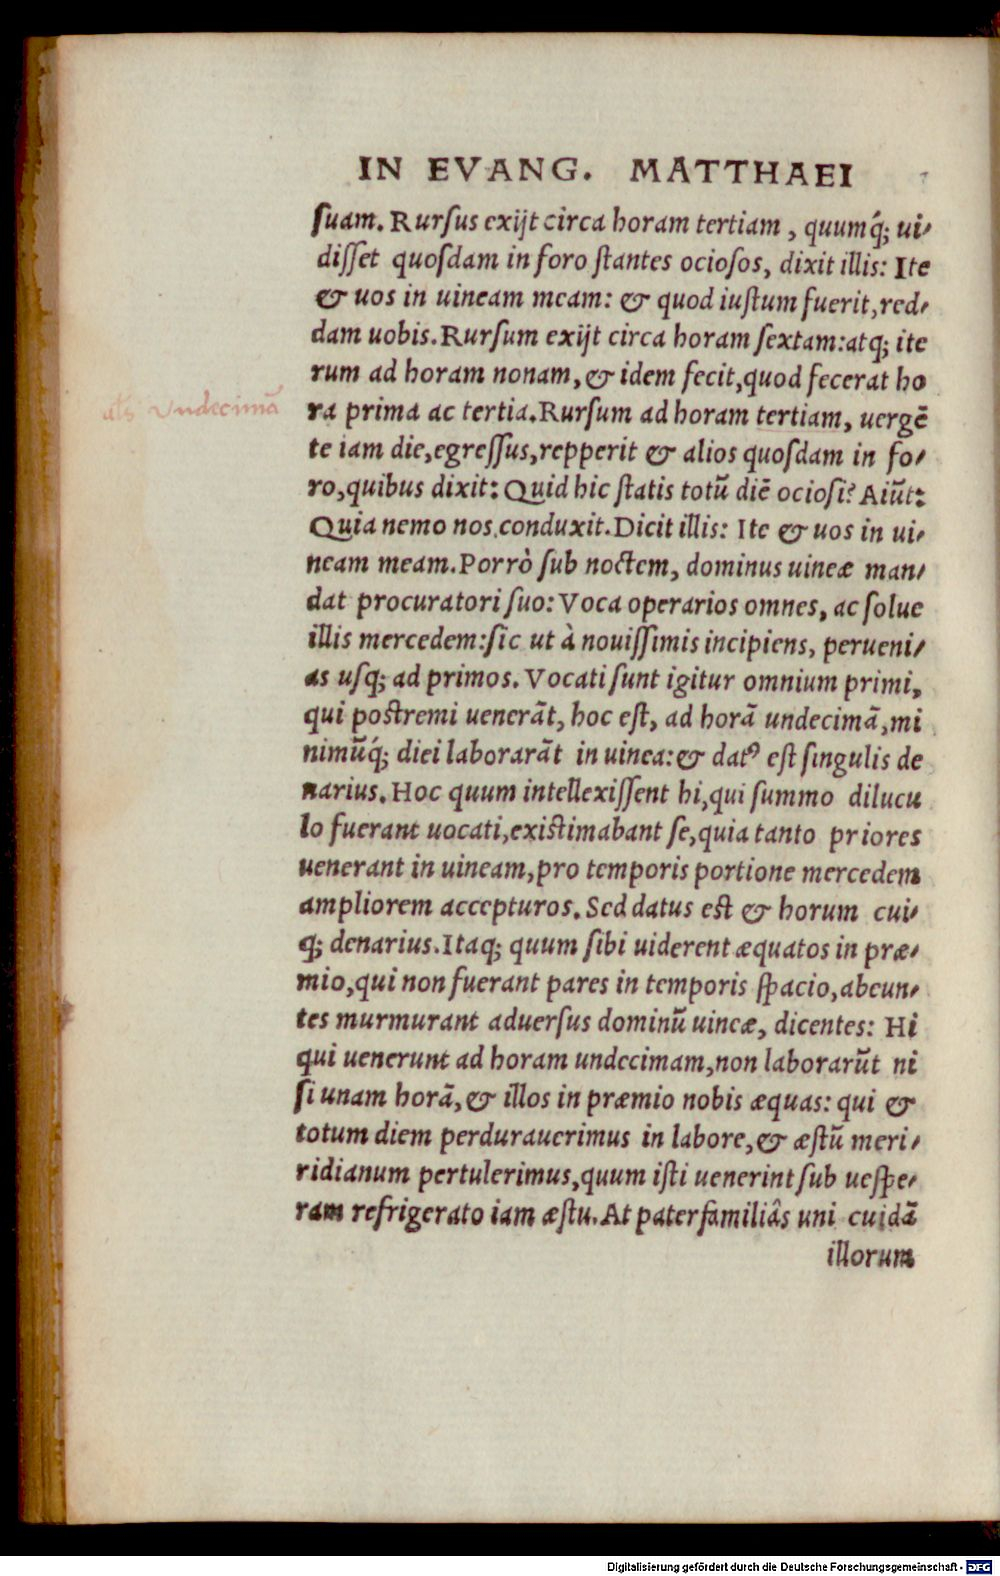 IN EVANG. MATTHAEI
ſuam. Rurſus exijt circa horam tertiam, quumq́; ui⸗
diſſet quoſdam in foro ſtantes ocioſos, dixit illis: Ite
& uos in uineam meam: & quod iuſtum fuerit, red⸗
dam uobis. Rurſum exijt circa horam ſextam: atq; ite
rum ad horam nonam, & idem fecit, quod fecerat ho
als Undecimā
ra prima ac tertia. Rurſum ad horam tertiam, uergē
te iam die, egreſſus, repperit & alios quoſdam in fo⸗
ro, quibus dixit: Quid hic ſtatis totū diē ocioſi? Aiūt:
Quia nemo nos conduxit. Dicit illis: Ite & uos in ui⸗
neam meam. Porrò ſub noctem, dominus uineæ man⸗
dat procuratori ſuo: Voca operarios omnes, ac ſolue
illis mercedem: ſic ut à nouiſſimis incipiens, perueni⸗
as uſq; ad primos. Vocati ſunt igitur omnium primi,
qui poſtremi uenerāt, hoc eſt, ad horā undecimā, mi
nimūq́; diei laborarāt in uinea: & datꝰ eſt ſingulis de
narius. Hoc quum intellexiſſent hi, qui ſummo dilucu
lo fuerant uocati, exiſtimabant ſe, quia tanto priores
uenerant in uineam, pro temporis portione mercedem
ampliorem accepturos. Sed datus eſt & horum cui⸗
q; denarius. Itaq; quum ſibi uiderent æquatos in præ⸗
mio, qui non fuerant pares in temporis ſpacio, abeun⸗
tes murmurant aduerſus dominū uineæ, dicentes: Hi
qui uenerunt ad horam undecimam, non laborarūt ni
ſi unam horā, & illos in præmio nobis æquas: qui &
totum diem perdurauerimus in labore, & æſtū meri⸗
ridianum pertulerimus, quum iſti uenerint ſub ueſpe⸗
ram refrigerato iam æſtu. At paterfamiliâs uni cuidā
illorum
Digitalisierung gefördert durch die Deutsche Forschungsgemeinschaft - DFG